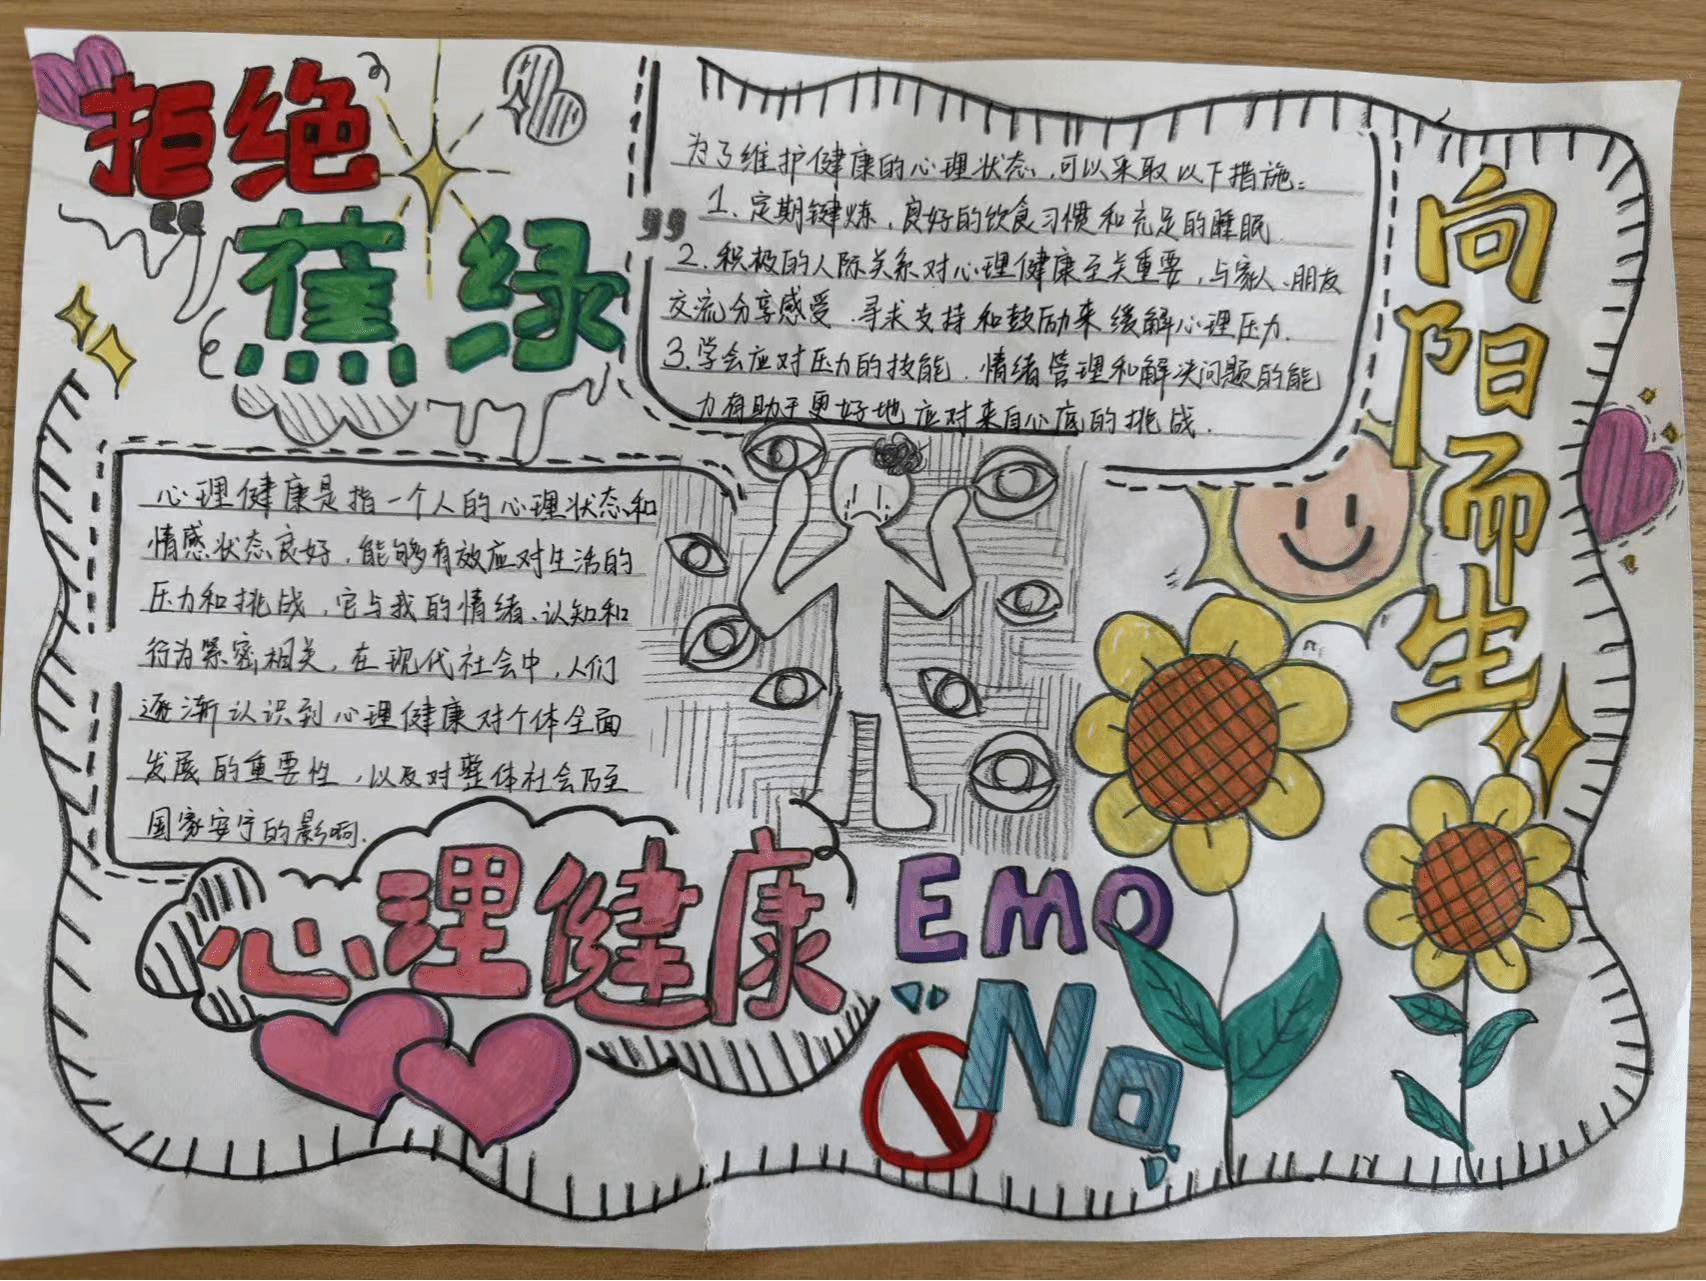 拒绝
蕉绿
为了维护健康的心理状态,可以采取以下措施:
1.定期键炼,良好的饮食习惯和充足的睡眠.
2.积极的人际关系对心理健康至关重要,与家人、朋友
交流分享感受.寻求支持和鼓励来缓解心理压力.
3.学会应对压力的技能.情绪管理和解决问题的能
力有助于更好地应对来自心底的挑战.
向阳而生
心理健康是指一个人的心理状态和
情感状态良好,能够有效应对生活的
压力和挑战,它与我的情绪、认知和
行为紧密相关,在现代社会中,人们
逐渐认识到心理健康对个体全面
发展的重要性,以及对整体社会乃至
国家安宁的影响.
心理健康
EMO
NO